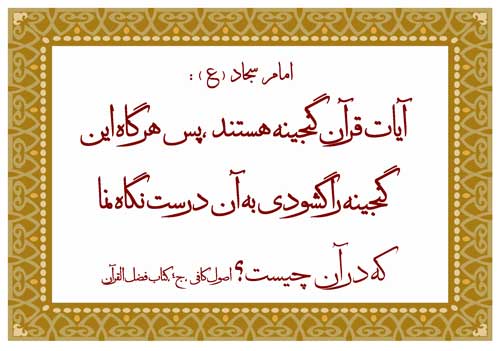 امام سجاد (ع) :
آیات قرآن گنجینه هستند ،پس هرگاه این
گنجینه را گشودی به آن درست نگاه نما
که در آن چیست؟ اصول کافی ،ج۴،کتاب فضل القرآن